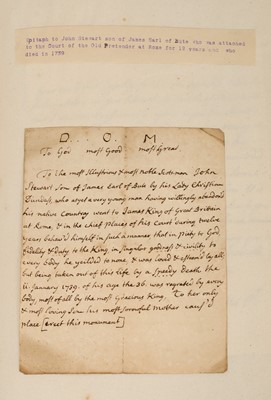 Epitaph to John Stewart son of James Earl of Bute who was attached
to the Court of the Old Pretender at Rome for 12 years and who
died in 1739
D. O. M.
To God most Good most Great
To the most Illustrious & most noble Scotsman John
Stewart Son of James Earl of Bute by his Lady Christian
Dundass, who as yet a very young man having willingly abandon'd
his native Country went to James King of Great Britain
at Rome, & in the chief places of his Court during twelve
years behav'd himself in such a manner that in Piety to God,
fidelity & Duty to the King, in singular goodness & civility to
every body he yeilded to none, & was lov'd & esteem'd by all,
but being taken out of this life by a speedy death the
January 1739. of his age the 36. was regreted by every
body, most of all by the most Gracious King. To her only
& most loving Son his most sorrowful mother caus'd
place [erect this monument]